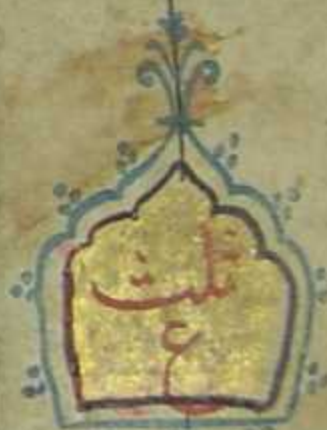 ثلث
ع